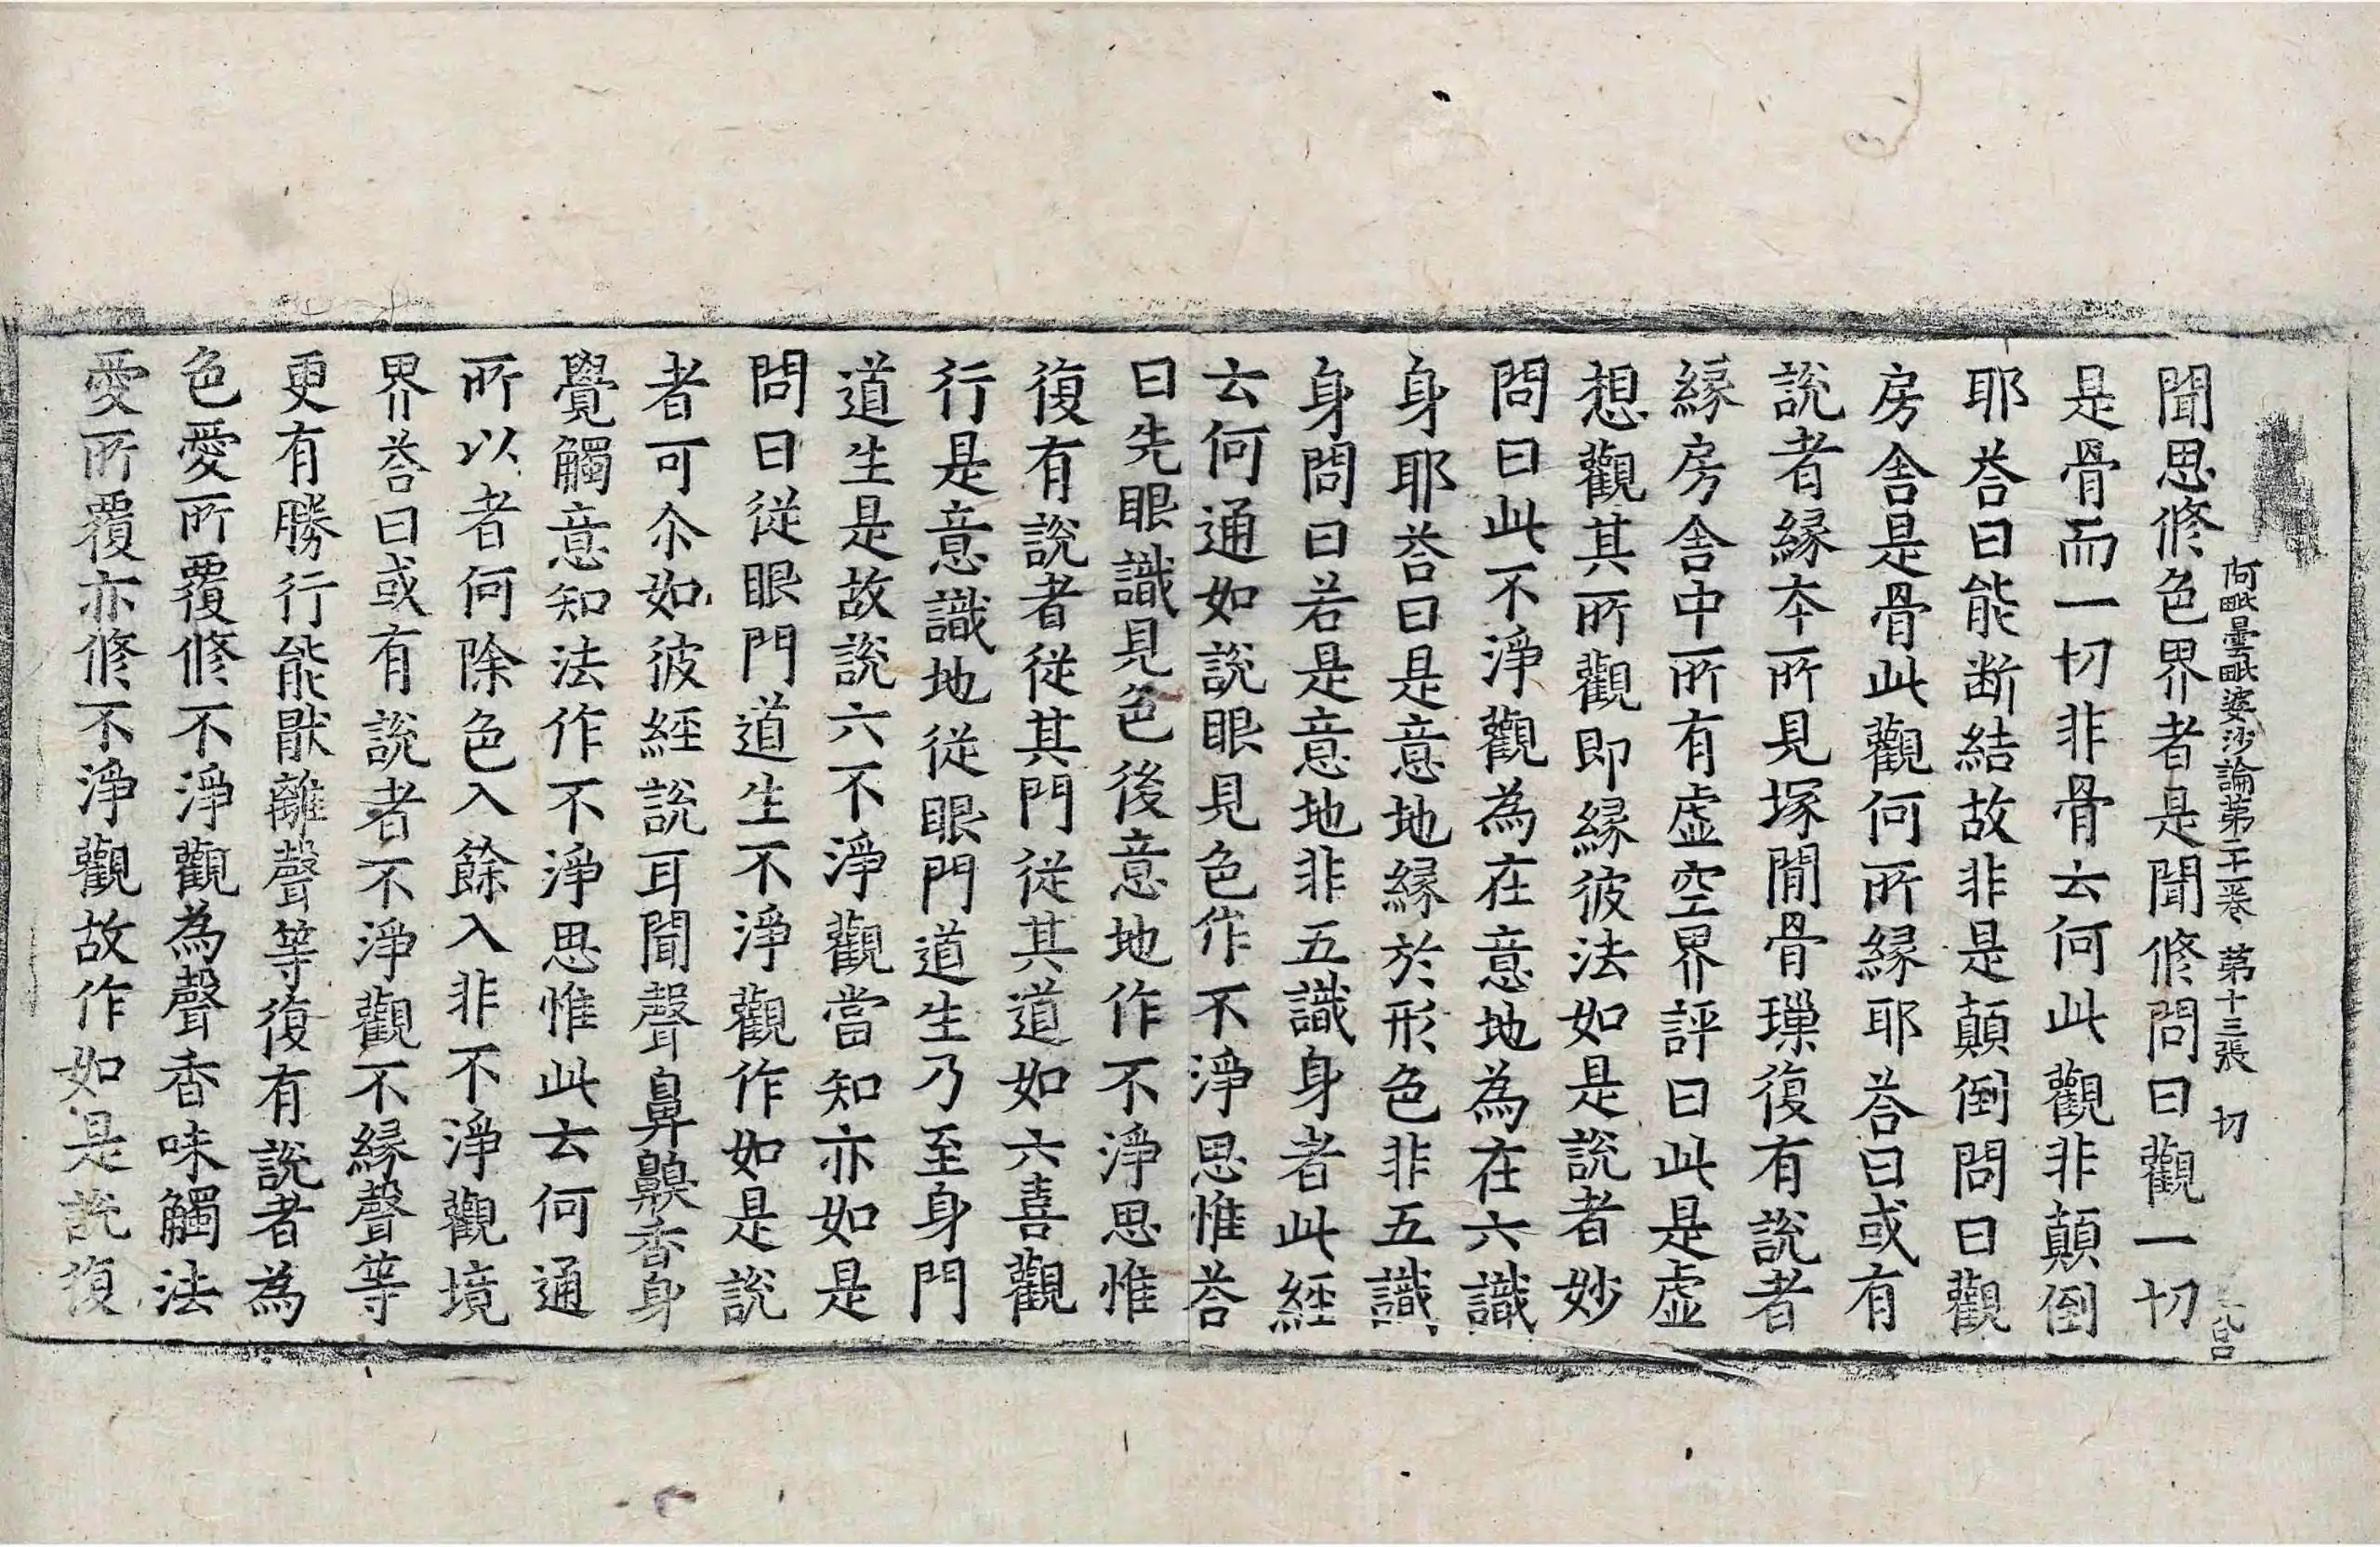 阿毗曇毗婆沙論第二十一卷 第十三張 切
聞思修色界者是聞修問曰觀一切
是骨而一切非骨云何此觀非顛倒
耶荅曰能断結故非是顛倒問曰觀
房舍是骨此觀何所縁耶荅曰或有
說者縁本所見塚閒骨璅復有說者
縁房舍中所有虛空界評曰此是虛
想觀其所觀即縁彼法如是說者妙
問曰此不淨觀為在意地為在六識
身耶荅曰是意地縁於形色非五識
身問曰若是意地非五識身者此經
云何通如說眼見色作不淨思惟荅
曰先眼識見色後意地作不淨思惟
復有說者從其門從其道如六喜觀
行是意識地從眼門道生乃至身門
道生是故說六不淨觀當知亦如是
問曰從眼門道生不淨觀作如是說
者可尒如彼經說耳聞聲鼻齅香身
覺觸意知法作不淨思惟此云何通
所以者何除色入餘入非不淨觀境
界荅曰或有說者不淨觀不縁聲等
更有勝行能猒離聲等復有說者為
色愛所覆修不淨觀為聲香味觸法
愛所覆亦修不淨觀故作如是說復